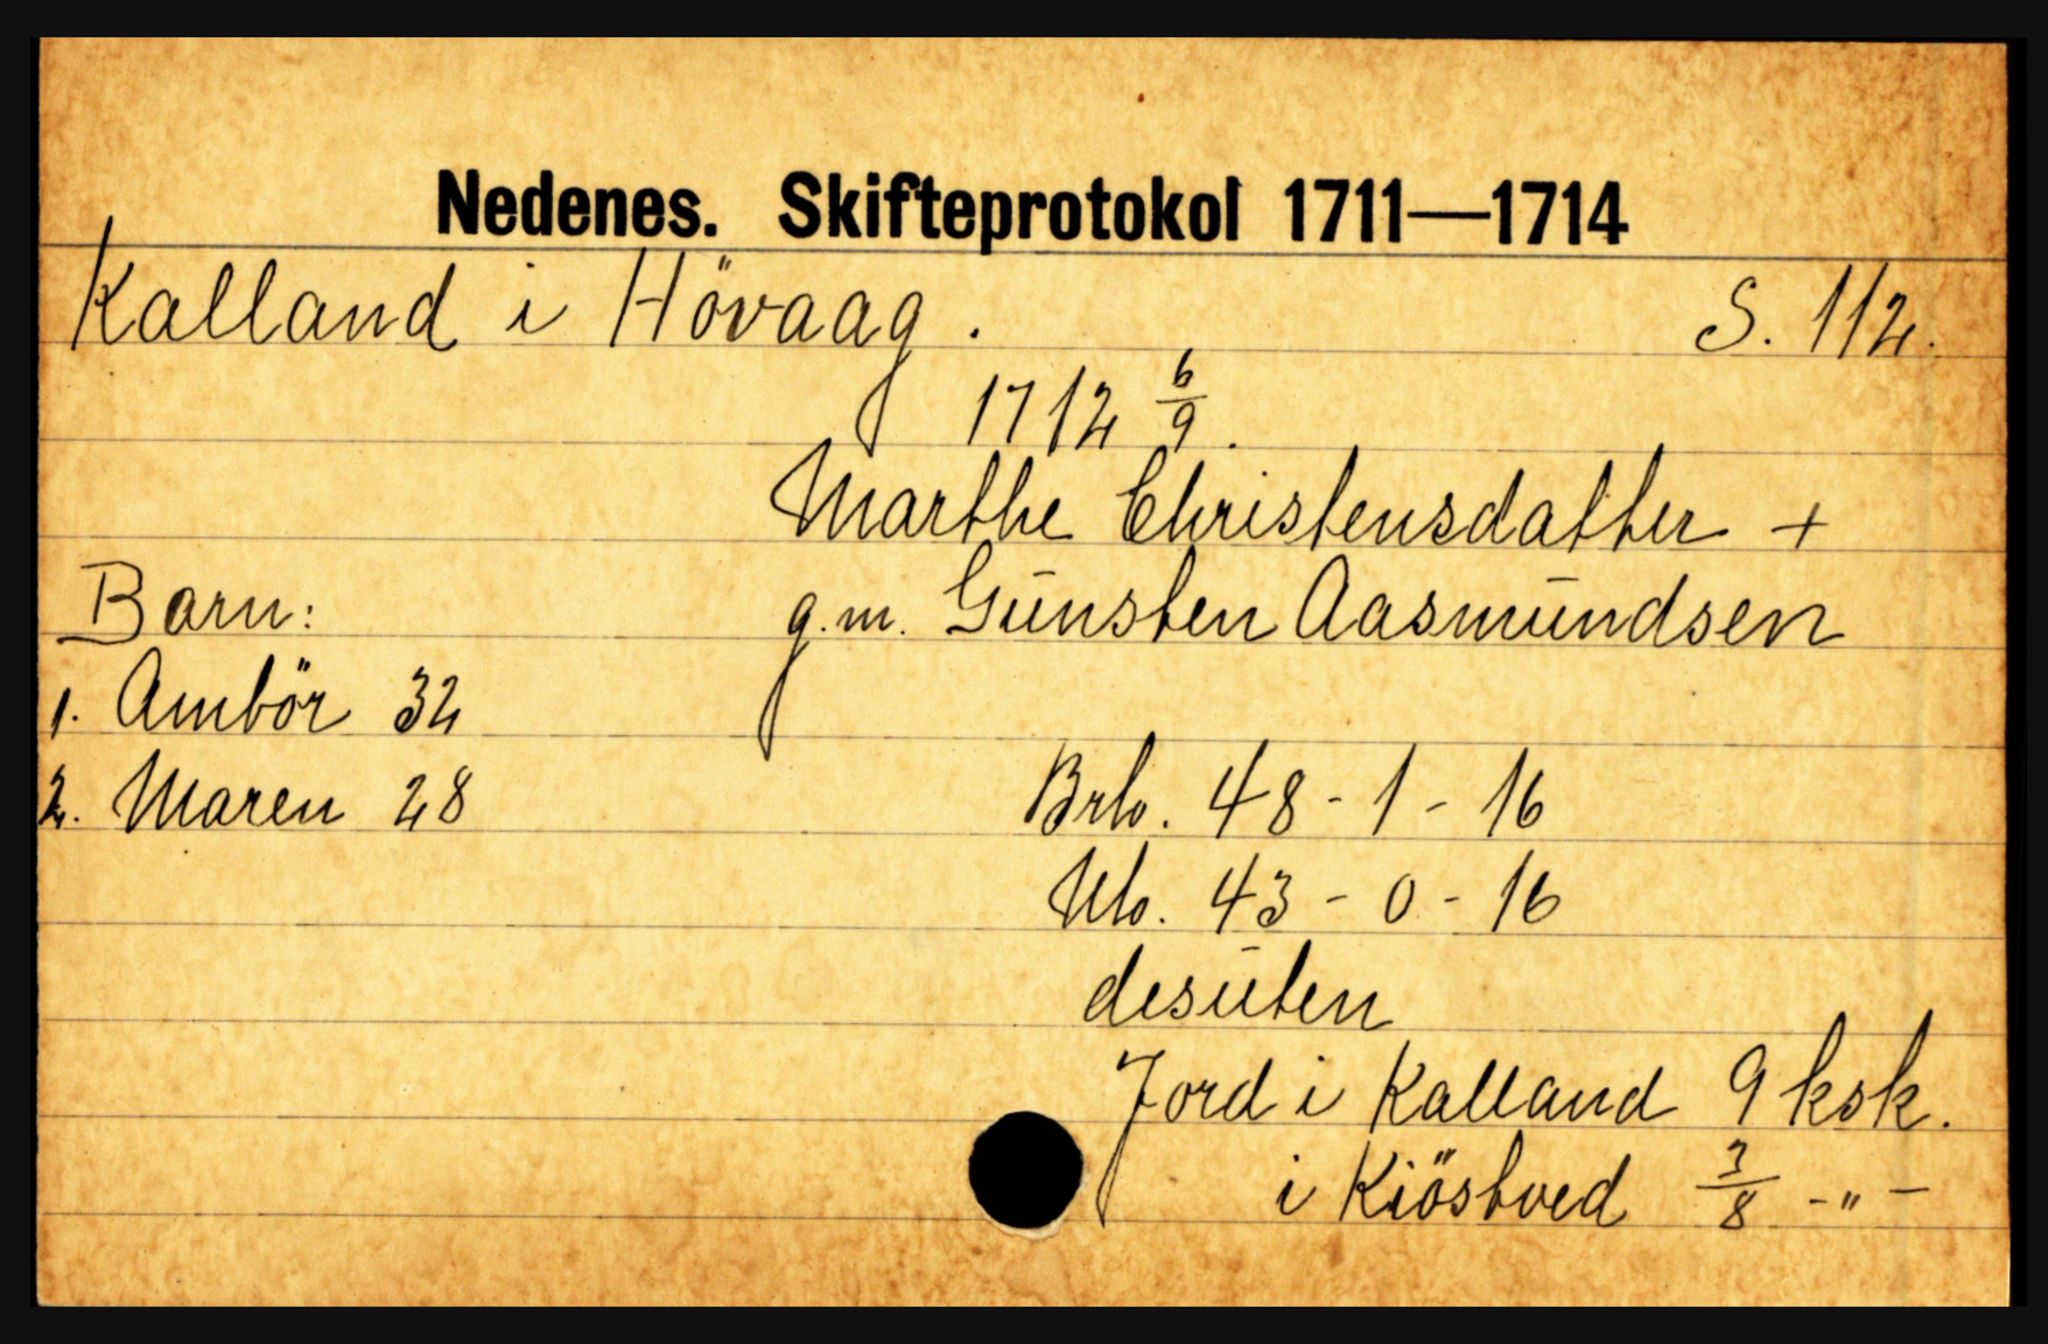 Nedenes. Skifteprotokol 1711—1714
Kalland i Hövaag. S. 112.
1712 6/9.
Marthe Christensdatter +
g.m. Gunsten Aasmundsen
Barn:
1. Ambör 32
2. Maren 28
Brb. 48 - 1 - 16
Nb. 43 - 0 - 16
desuten
Jord i Kalland 9 ksk.
i Kiöstved 7/8 - " -